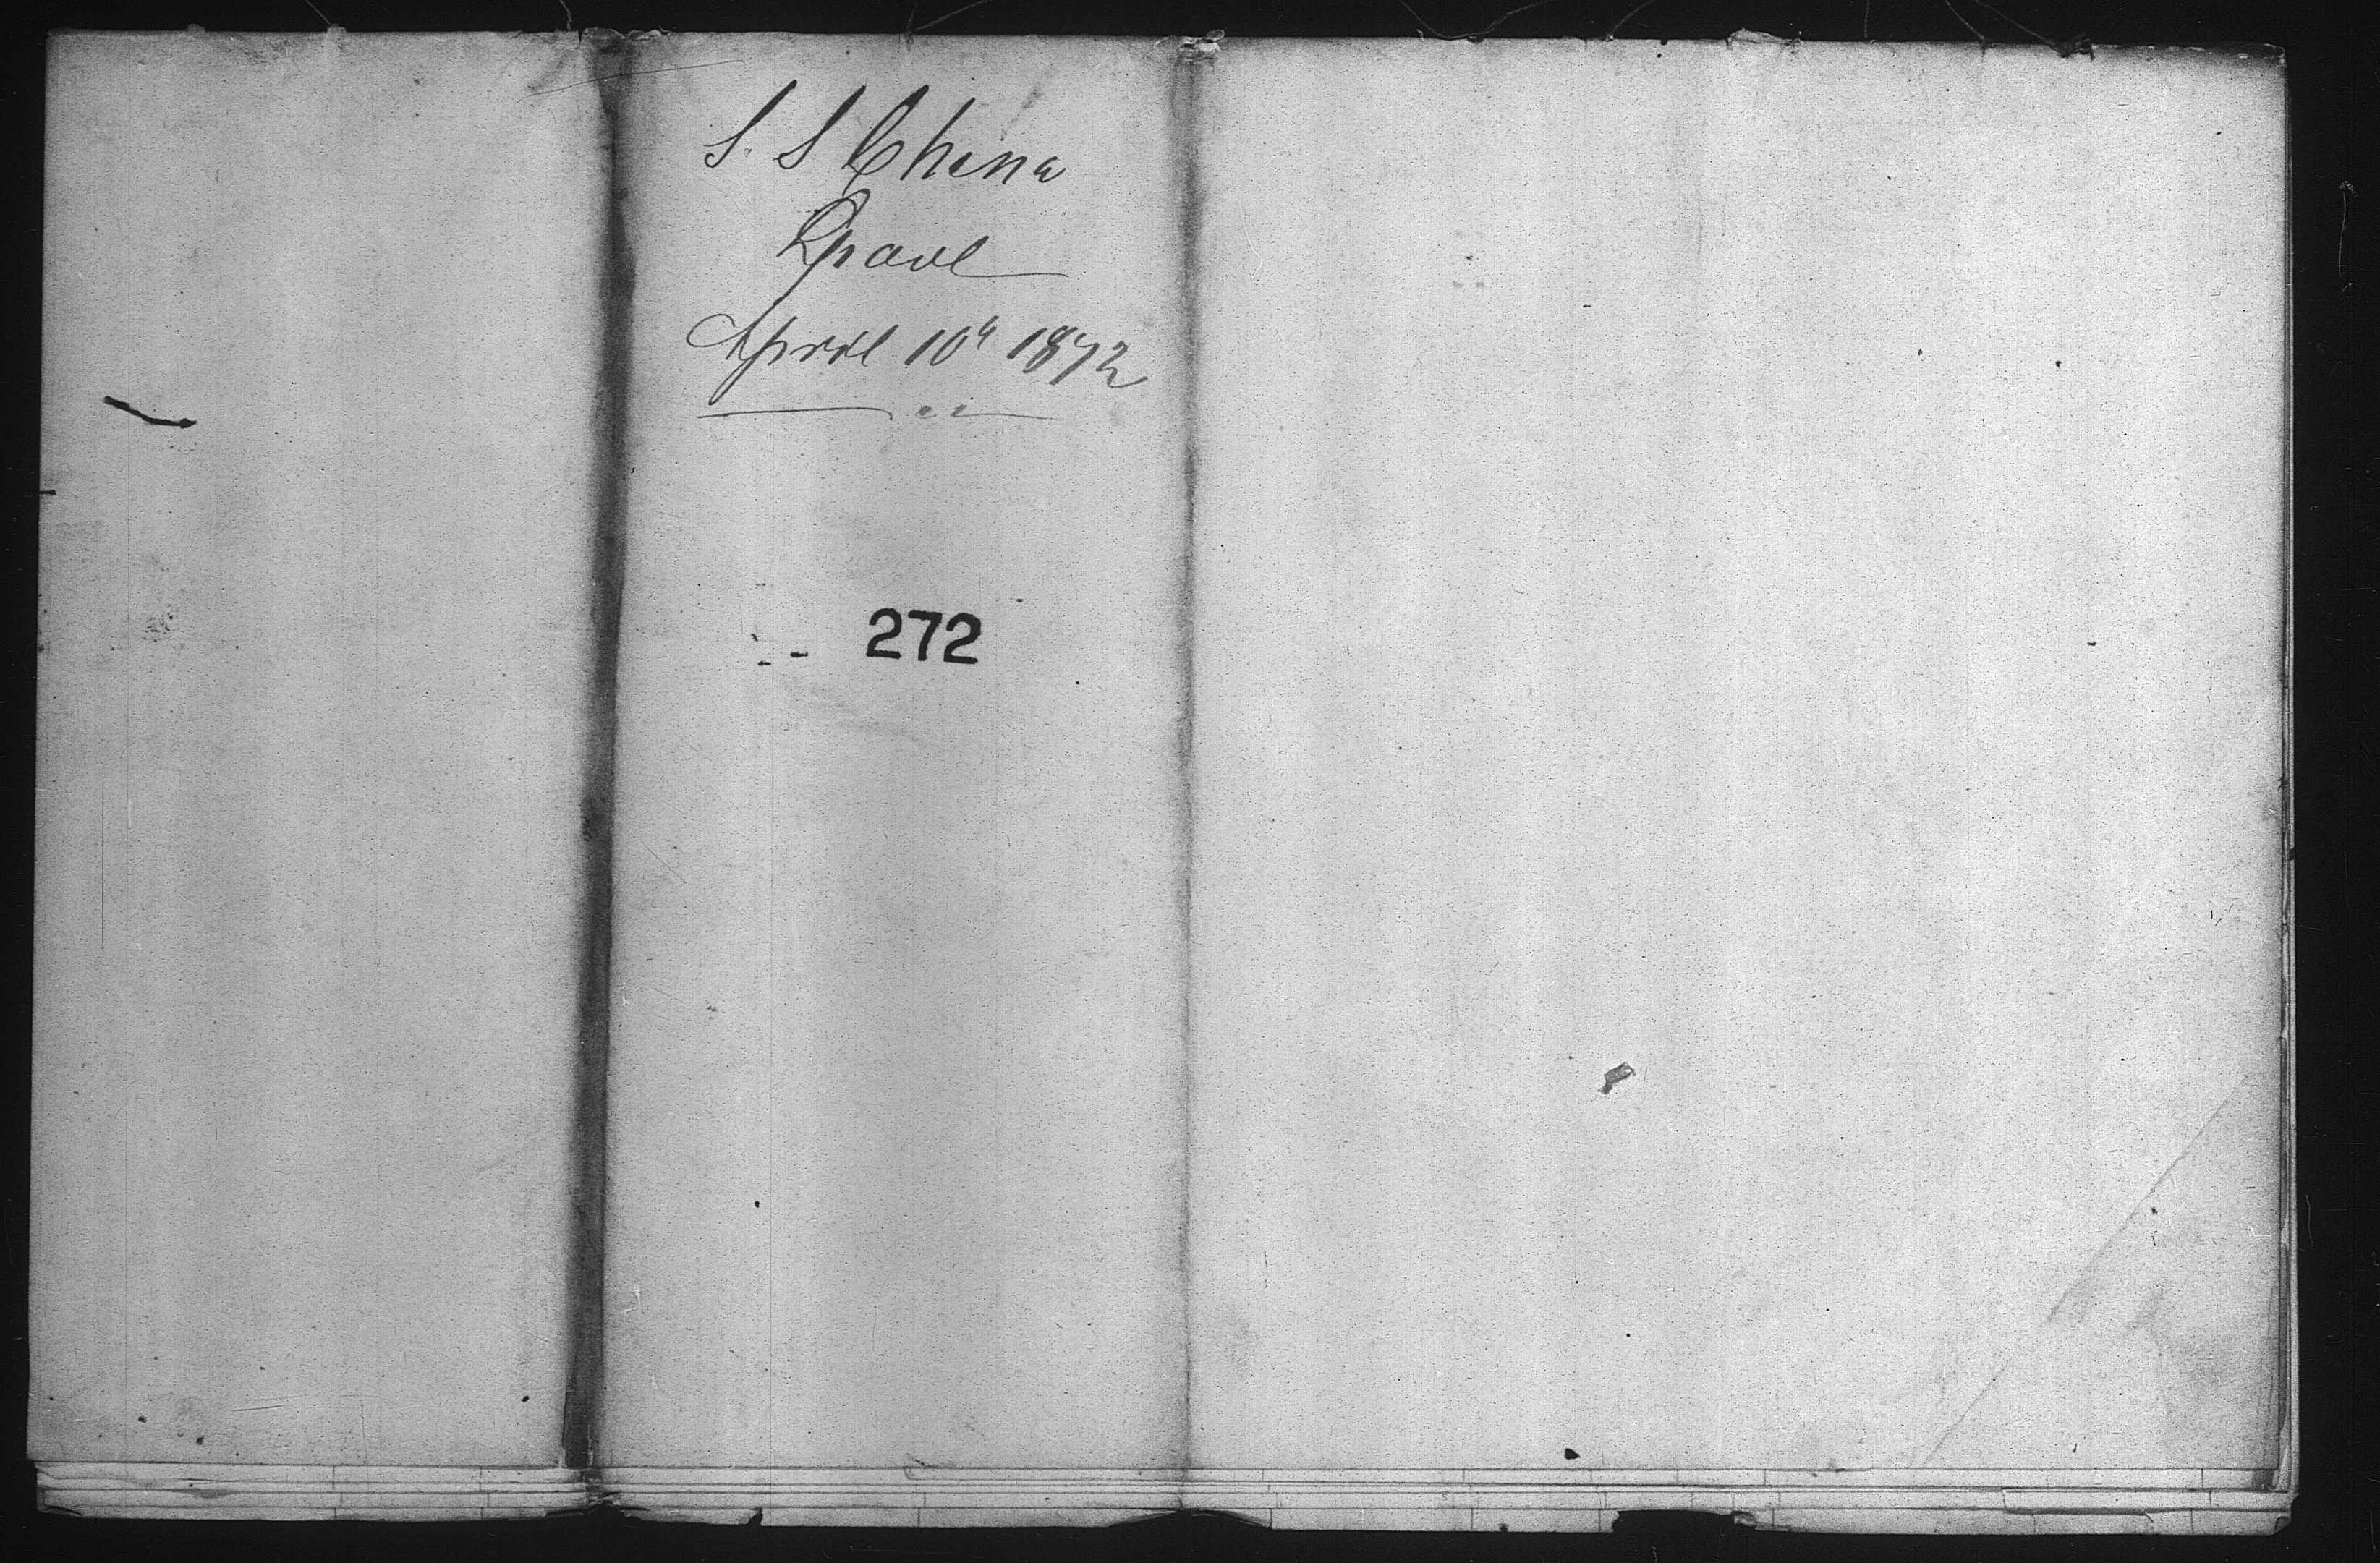 S. S China
L'pool
April 10th 1872
272